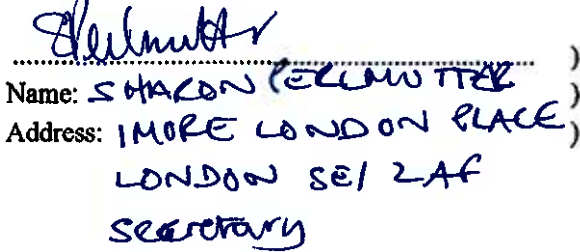 SPerlmutter
........................................................ )
Name: SHARON PERLMUTTER )
Address: 1 MORE LONDON PLACE )
LONDON SE1 2AF
Secretary